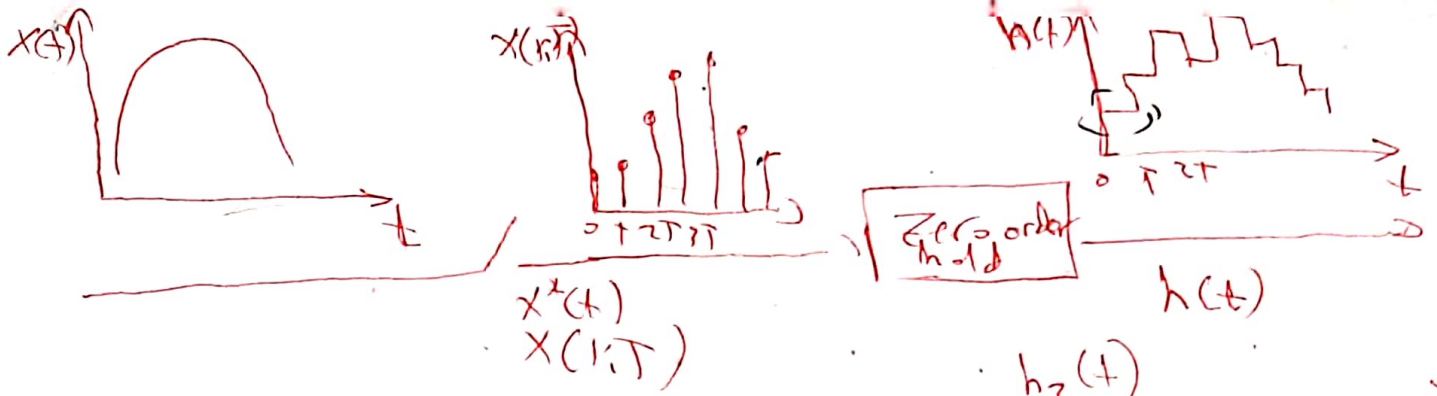 x(t)
t
x(kT)
0 T 2T 3T
x*(t)
x(kT)
Zero order
hold
h(t)
0 T 2T
t
h(t)